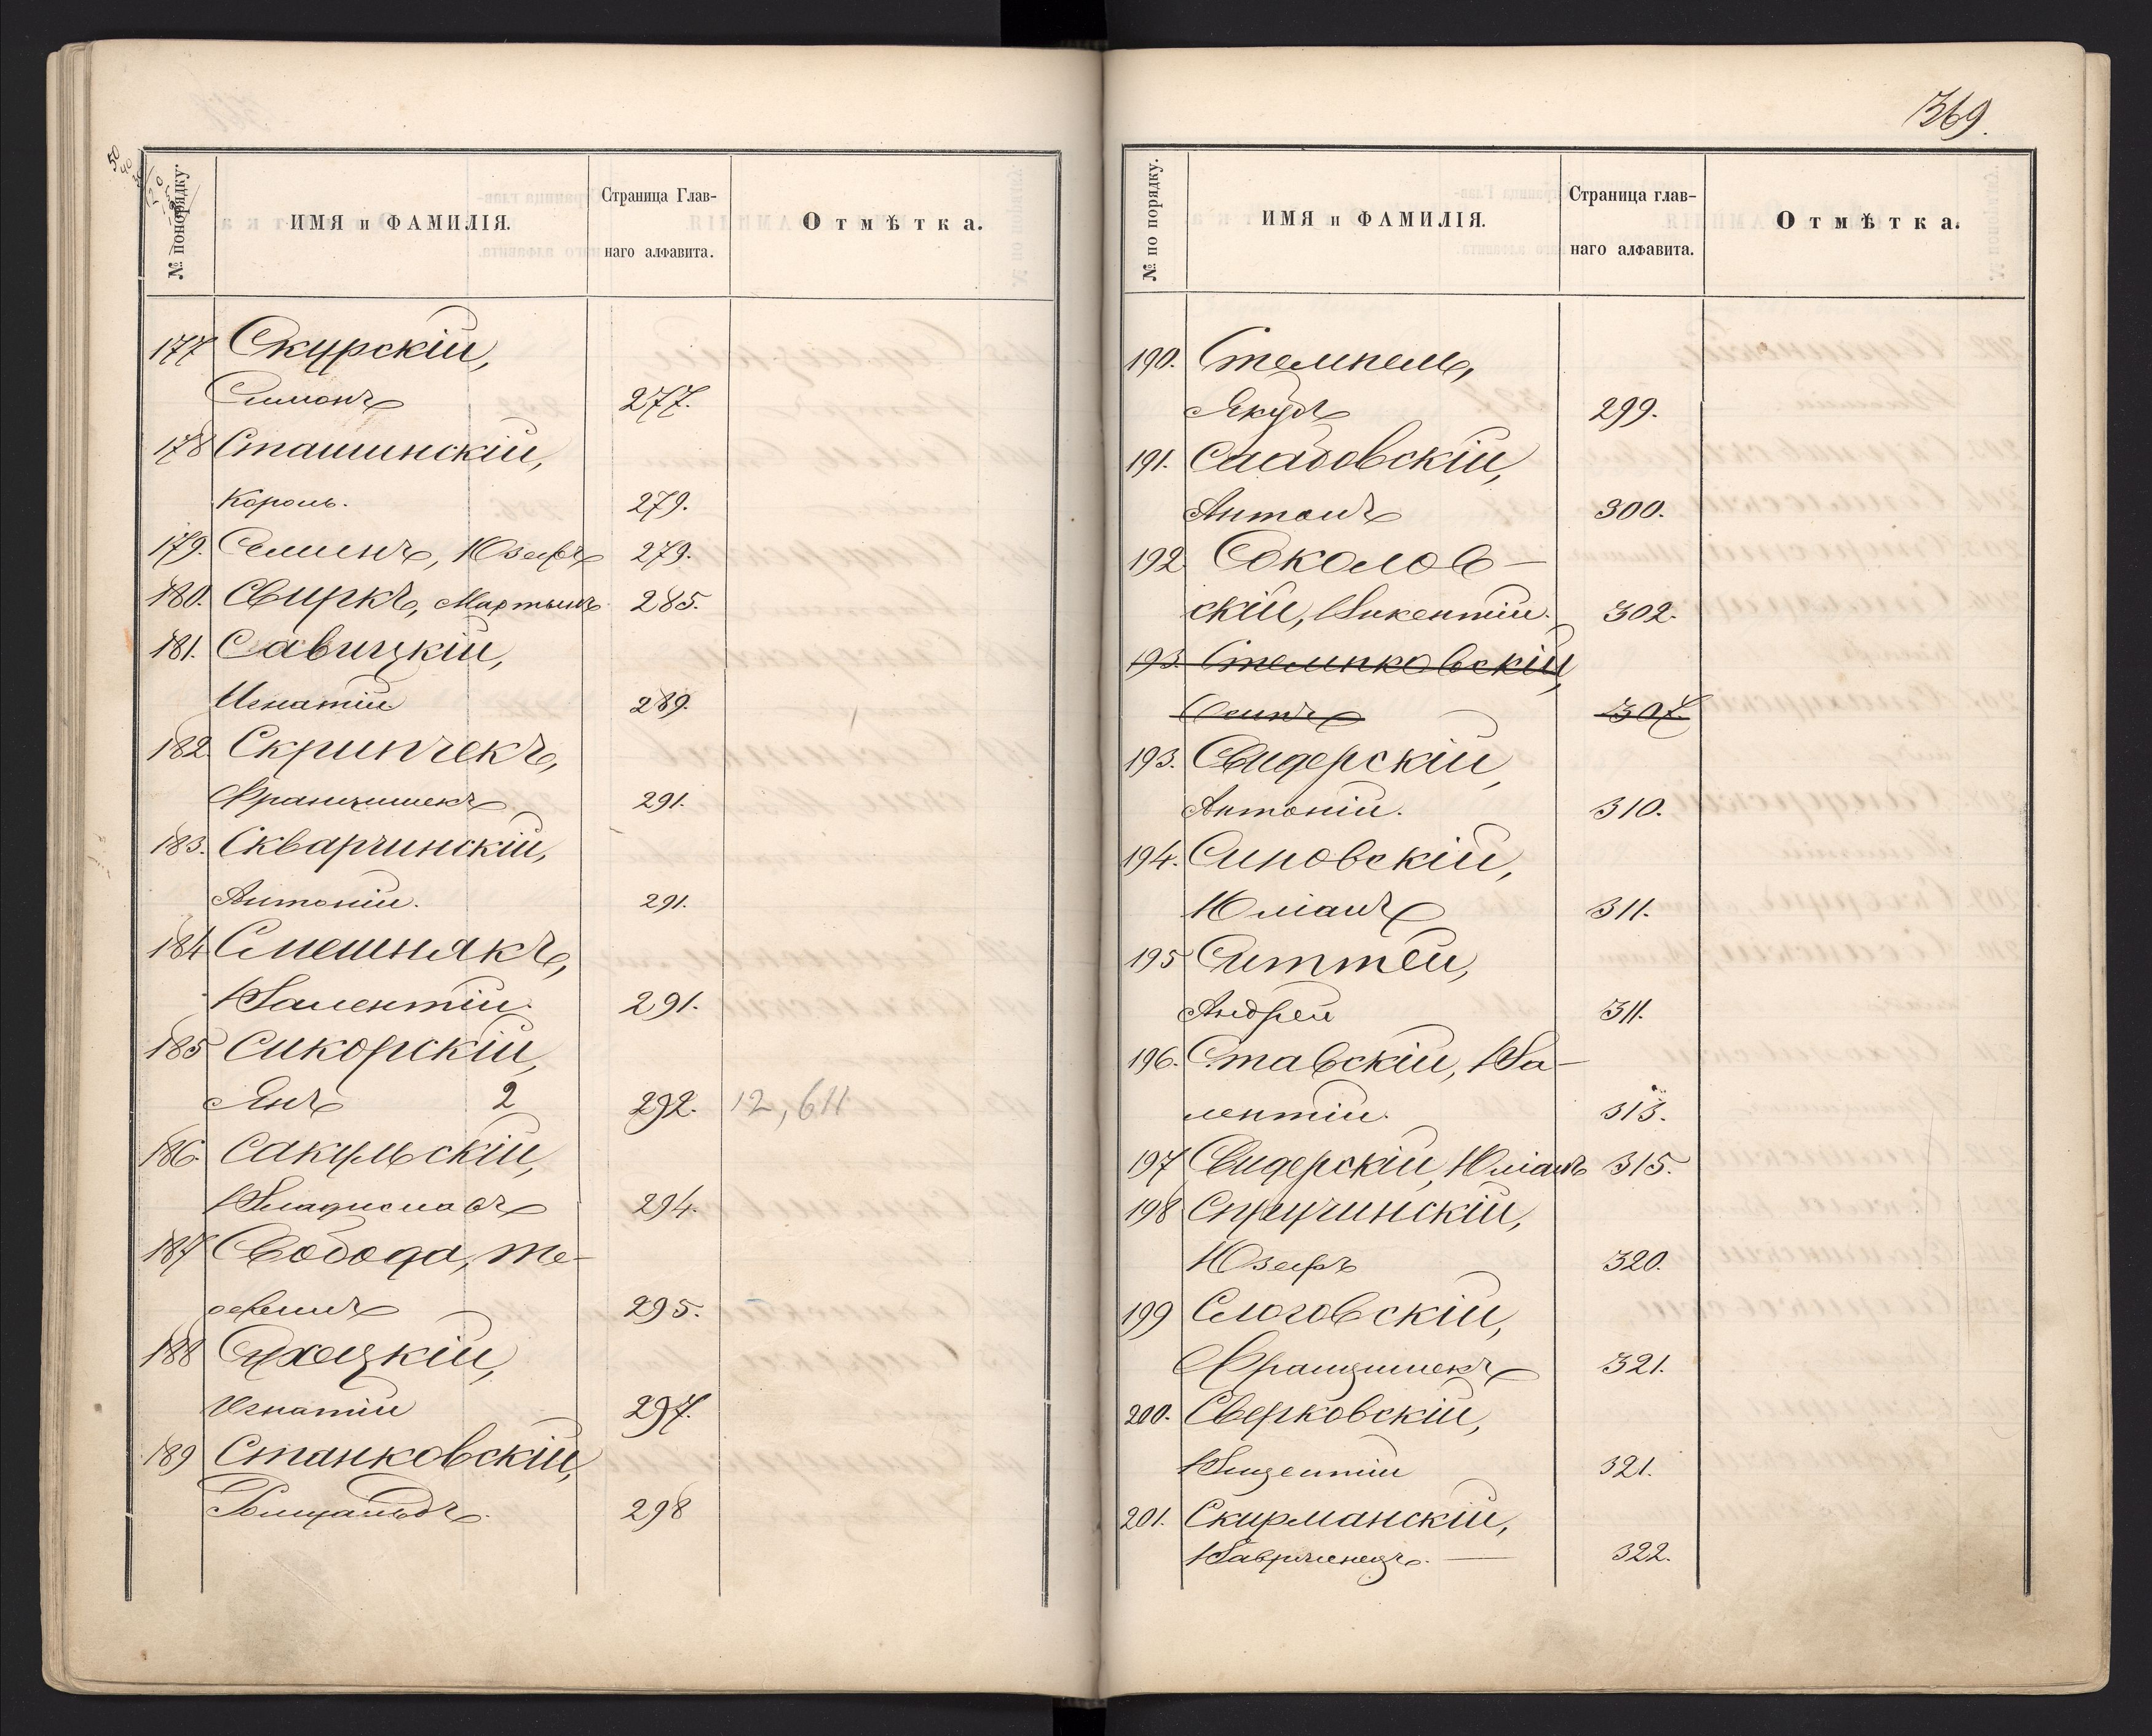 № по порядку.
ИМЯ и ФАМИЛІЯ.
Страница Глав-
наго алфавита.
Отмѣтка.
177 Скурскій,
Симонъ 277.
178 Сташинскій,
Король. 279.
179. Семинъ, Юзефъ 279.
180. Свиркъ, Мартынъ 285.
181. Савицкій,
Игнатій 289.
182. Скрипчекъ,
Францишекъ 291.
183. Скварчинскій,
Антоній. 291.
184 Смешнякъ,
Валентій. 291.
185 Сикорскій,
Янъ 2 292. 12, 611
186. Сакульскій,
Владиславъ 294.
187 Свобода, Те-
офилъ 295.
188 Сухоцкій,
Игнатій 297.
189 Станковскій,
Ромуальдъ. 298
369.
№ по порядку.
ИМЯ и ФАМИЛІЯ.
Страница глав-
наго алфавита.
Отмѣтка.
190. Стемпель,
Якубъ 299.
191. Сладовскій,
Антонъ 300.
192 Соколов-
скій, Викентій. 302.
193. Стемпковскій,
Осипъ 307.
193. Свидерскій,
Антоній. 310.
194. Синовскій,
Юліанъ 311.
195 Ситтей,
Андрей 311.
196. Ставскій, Ва-
лентій. 313.
197 Свидерскій, Юліанъ 315.
198 Спущинскій,
Юзефъ 320.
199 Слоговскій,
Францишекъ 321.
200. Сверковскій,
Винцентій 321.
201. Скирманскій,
Ваврженецъ. — 322.